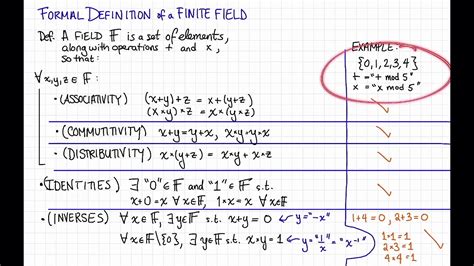 FORMAL DEFINITION of a FINITE FIELD
Def. A FIELD 𝔽 is a set of elements,
along with operations + and ×,
so that:
∀x,y,z ∈ 𝔽:
• (ASSOCIATIVITY) (x+y)+z = x+(y+z)
(x×y)×z = x×(y×z)
• (COMMUTITIVITY) x+y=y+x, x×y=y×x
• (DISTRIBUTIVITY) x×(y+z) = x×y + x×z
• (IDENTITIES) ∃ "0"∈𝔽 and "1"∈𝔽 s.t.
x+0=x ∀x∈𝔽, 1×x=x ∀x∈𝔽
• (INVERSES) ∀x∈𝔽, ∃y∈𝔽 s.t. x+y=0 ← y="-x"
∀x∈𝔽\{0}, ∃y∈𝔽 s.t. x×y=1 ← y="1/x"="x⁻¹"
EXAMPLE:
{0,1,2,3,4}
+ = "+ mod 5"
× = "× mod 5"
1+4=0, 2+3=0
1×1=1
2×3=1
4×4=1